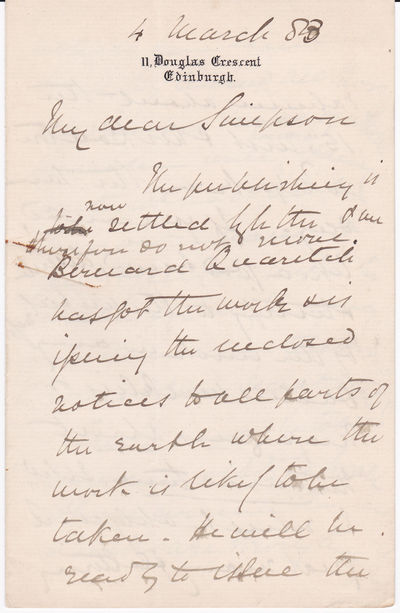 4 March 83
11, Douglas Crescent
Edinburgh.
My dear Simpson
The publishing is
now
settled
therefore do not move.
Bernard Quaritch
has got the work & is
issuing the enclosed
notices to all parts of
the earth where the
work is likely to be
taken - He will be
ready to issue the